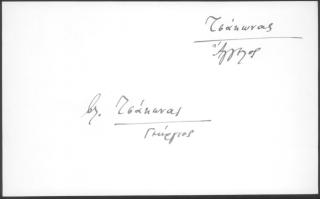 Τσάκωνας
Άγγελος
βλ. Τσάκωνας
Γεώργιος